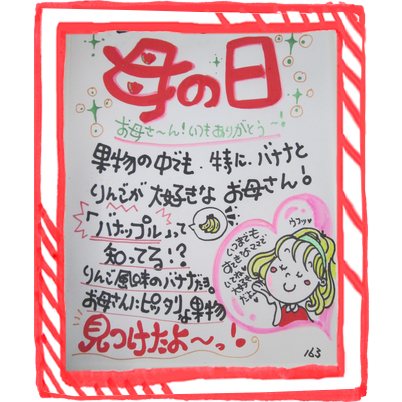 母の日
お母さ〜ん!いつもありがとう〜!
果物の中でも、特に、バナナと
りんごが大好きなお母さん!
「バナップル」って
知ってる!?
りんご風味のバナナだヨ。
お母さんにピッタリな果物
見つけたよ〜っ!
ウフッ♥
いつまでも
すてきなママで
いてね♥
大好き
163